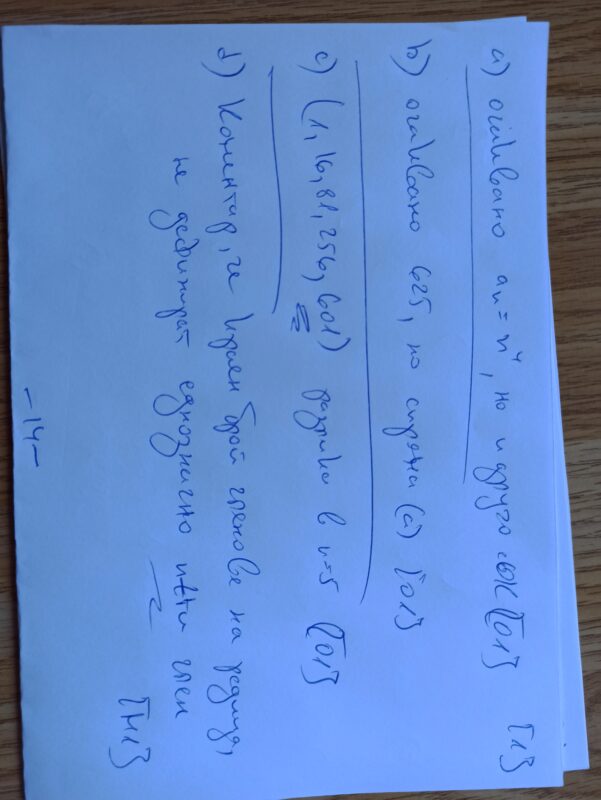 [1]
a) очаквано aₙ = n⁴, но и друго ок [01]
b) очаквано 625, но спрямо (a) [01]
c) (1, 16, 81, 256, 601) разлика в n=5 [01]
d) Коментар, че краен брой членове на редица,
не дефинират еднозначно n-ти член
[H1]
-14-